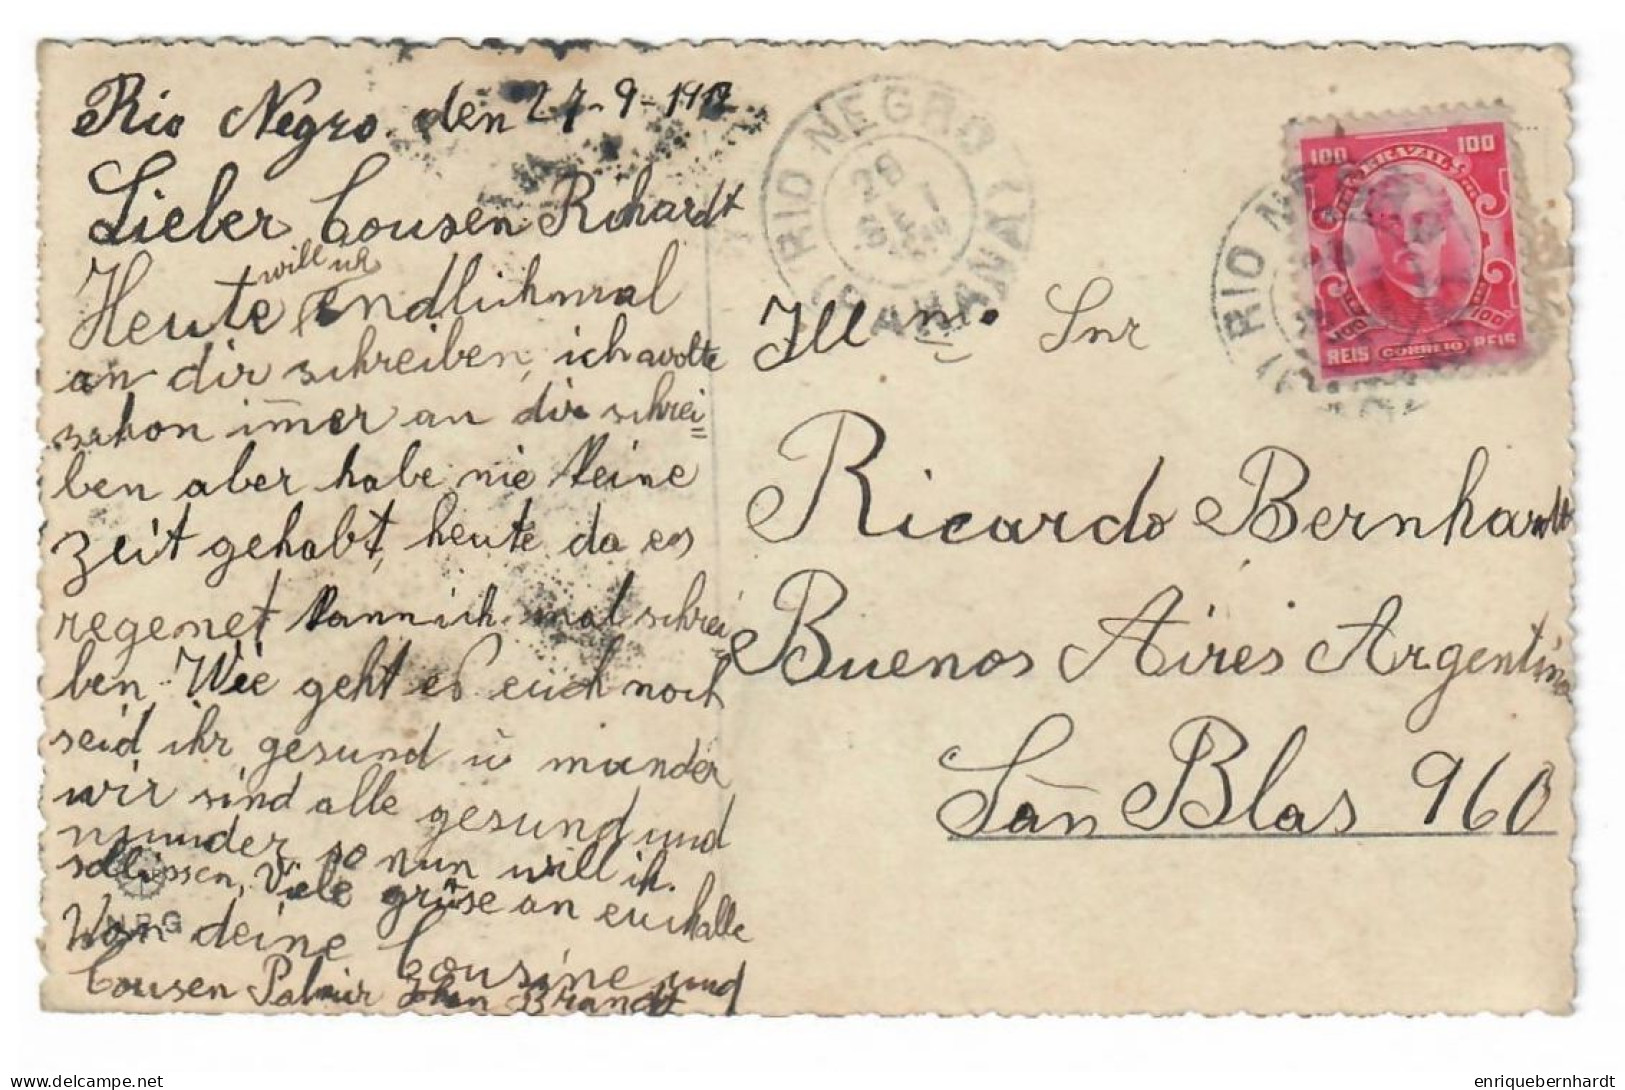 Rio Negro. den 27-9-191
Lieber Cousen Richardt
Heute will ich endlichmal
an dir schreiben, ich wolte
schon im̄er an dir schrei=
ben aber habe nie keine
zeit gehabt, heute da es
regenet kann ich mal schrei
ben. Wie geht es euch noch
seid ihr gesund ū munder
wir sind alle gesund und
munder, so nun will ich
schlissen, Viele grüse an euch alle
Von deine Cousine und
Cousen Brandt
NPG
RIO NEGRO (PARANA)
28
Ill m. Snr
Ricardo Bernhardt
Buenos Aires Argentina
San Blas 960
RIO N
100 BRAZIL 100
100 100
REIS CORREIO REIS
enriquebernhardt@hotmail.com